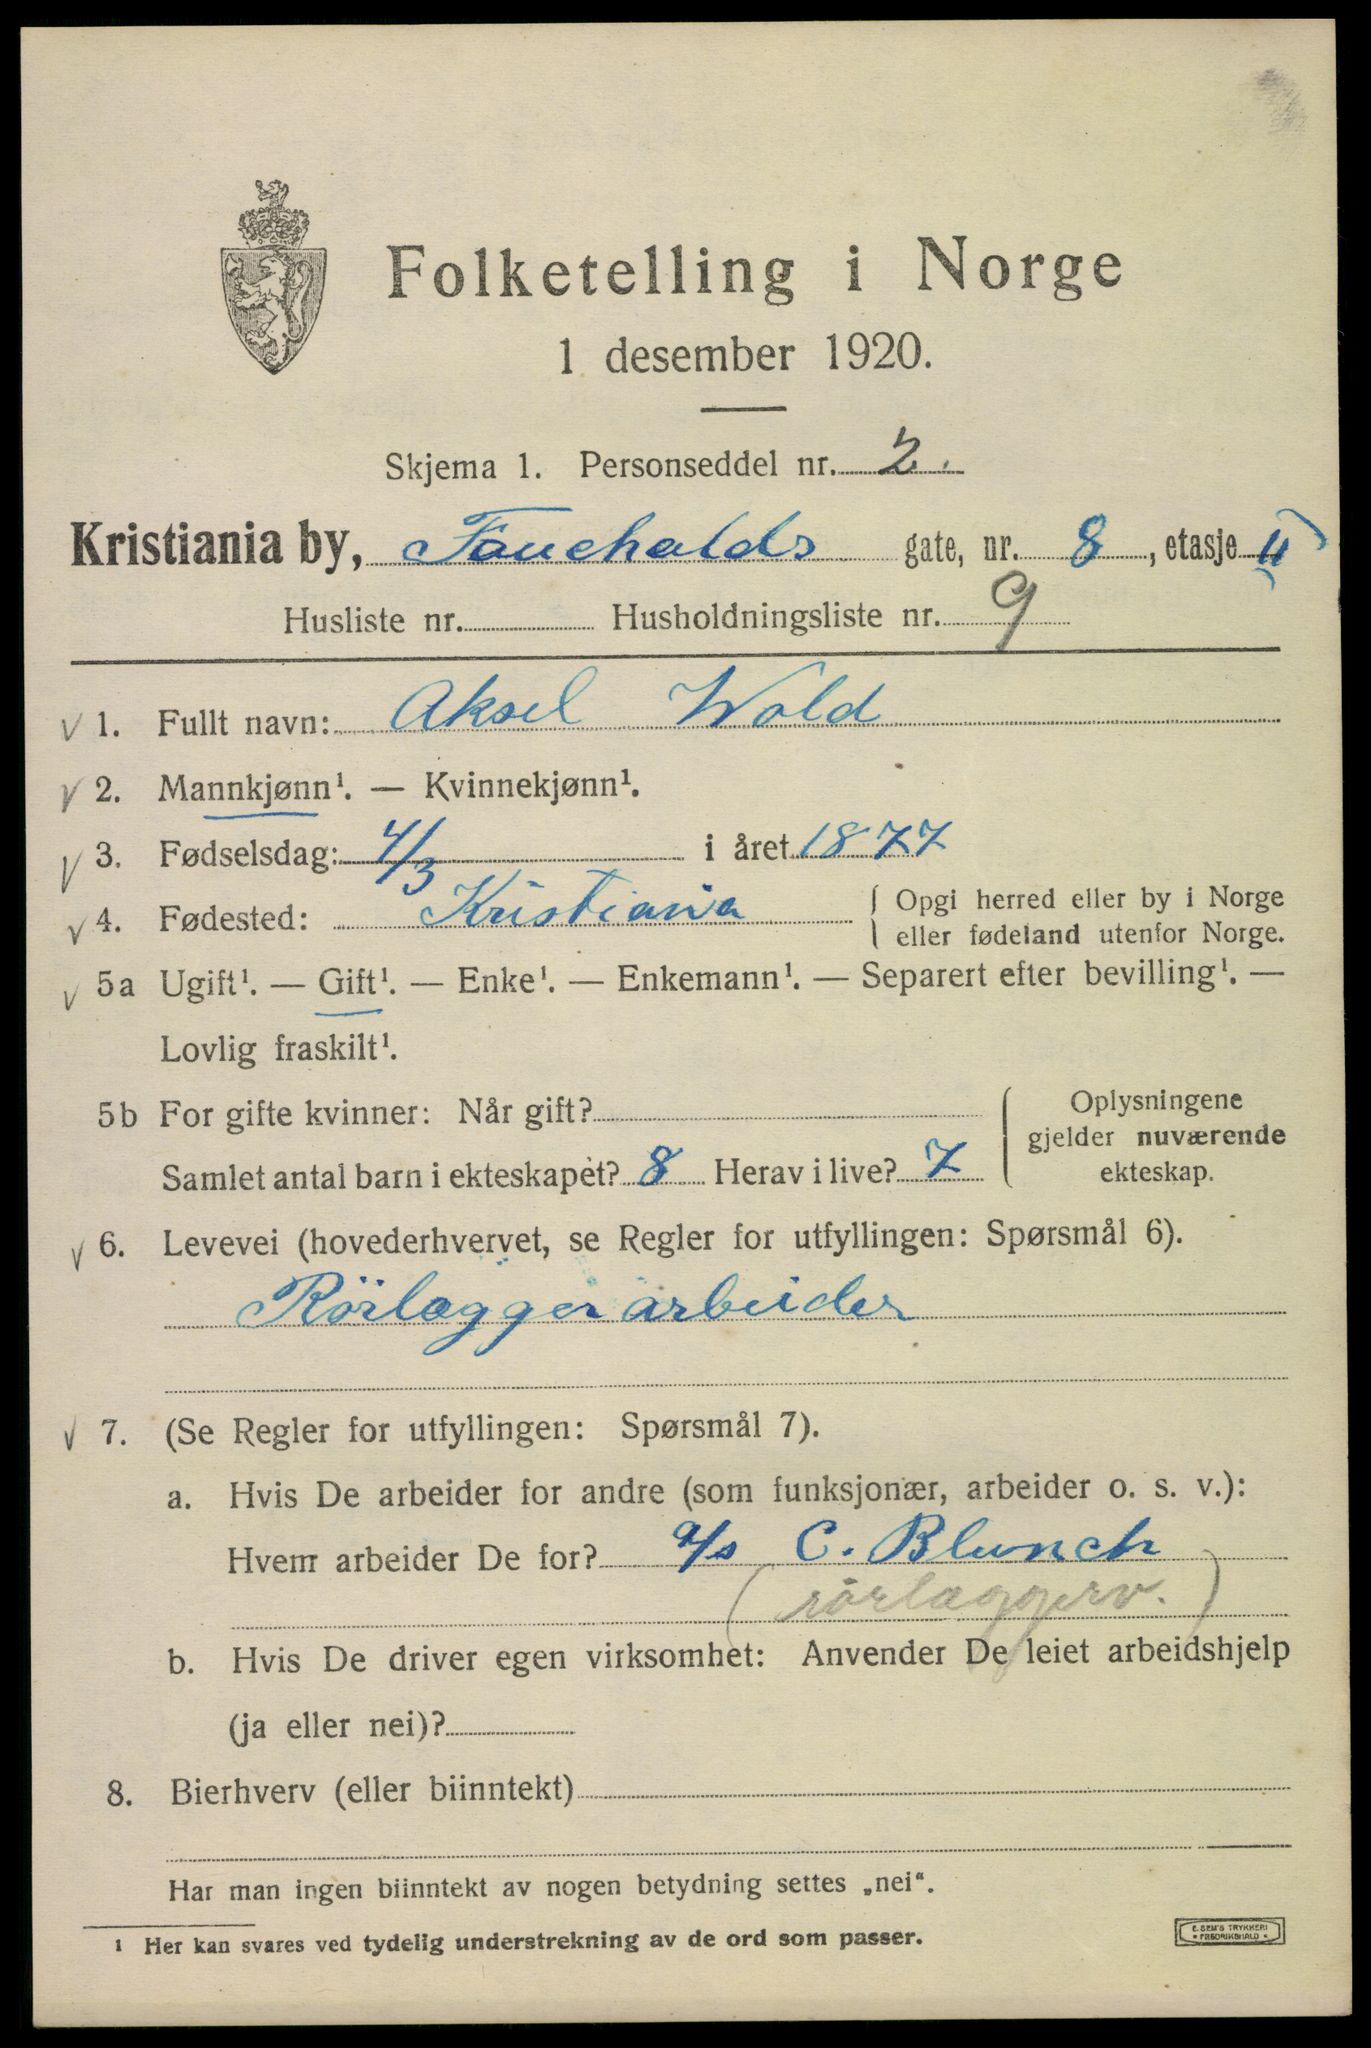 Folketelling i Norge
1 desember 1920.
Skjema 1. Personseddel nr. 2.
Kristiania by, Fauchalds gate, nr. 8, etasje II
Husliste nr. Husholdningsliste nr. 9
1. Fullt navn: Aksel Wold
2. Mannkjønn¹. — Kvinnekjønn¹.
3. Fødselsdag: 4/3 i året 1877
4. Fødested: Kristiania { Opgi herred eller by i Norge
eller fødeland utenfor Norge.
5a Ugift¹. — Gift¹. — Enke¹. — Enkemann¹. — Separert efter bevilling¹. —
Lovlig fraskilt¹.
5b For gifte kvinner: Når gift?
Samlet antal barn i ekteskapet? 8 Herav i live? 7
Oplysningene
gjelder nuværende
ekteskap.
6. Levevei (hovederhvervet, se Regler for utfyllingen: Spørsmål 6).
Rörlæggerarbeider
7. (Se Regler for utfyllingen: Spørsmål 7).
a. Hvis De arbeider for andre (som funksjonær, arbeider o. s. v.):
Hvem arbeider De for? A/s C. Blunch
(rörlæggerv.)
b. Hvis De driver egen virksomhet: Anvender De leiet arbeidshjelp
(ja eller nei)?
8. Bierhverv (eller biinntekt)
Har man ingen biinntekt av nogen betydning settes „nei“.
1 Her kan svares ved tydelig understrekning av de ord som passer.
E. SEM'S TRYKKERI
• FREDRIKSHALD •